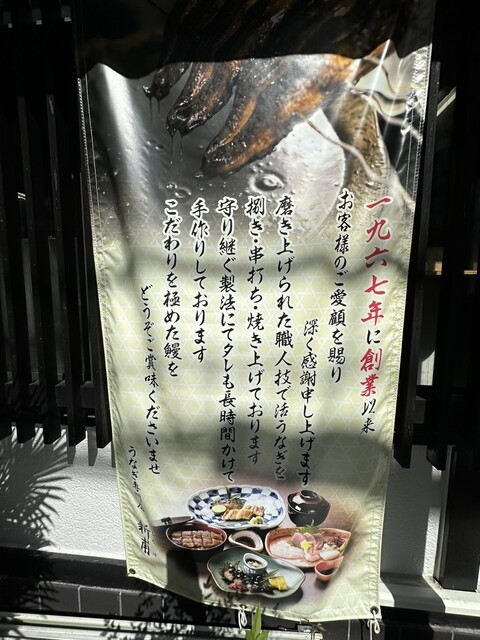 一九六七年に創業以来
お客様のご愛顧を賜り
深く感謝申し上げます
磨き上げられた職人技で活うなぎを
捌き・串打ち・焼き上げております
守り継ぐ製法にてタレも長時間かけて
手作りしております
こだわりを極めた鰻を
どうぞご賞味くださいませ
うなぎ